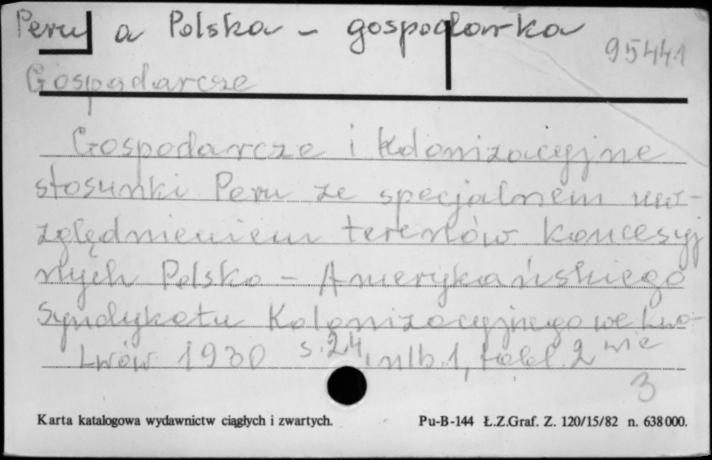 Peru a Polska - gospodarka
95441
Gospodarcze
Gospodarcze i kolonizacyjne
stosunki Peru ze specjalnem uw-
zględnieniem terenów koncesyj
nych Polsko - Amerykańskiego
Syndykatu Kolonizacyjnego we Lwo-
wie
Lwów 1930 s. 24, nlb. 1, tabl. 2
3
Karta katalogowa wydawnictw ciągłych i zwartych. Pu-B-144 Ł.Z.Graf. Z. 120/15/82 n. 638000.